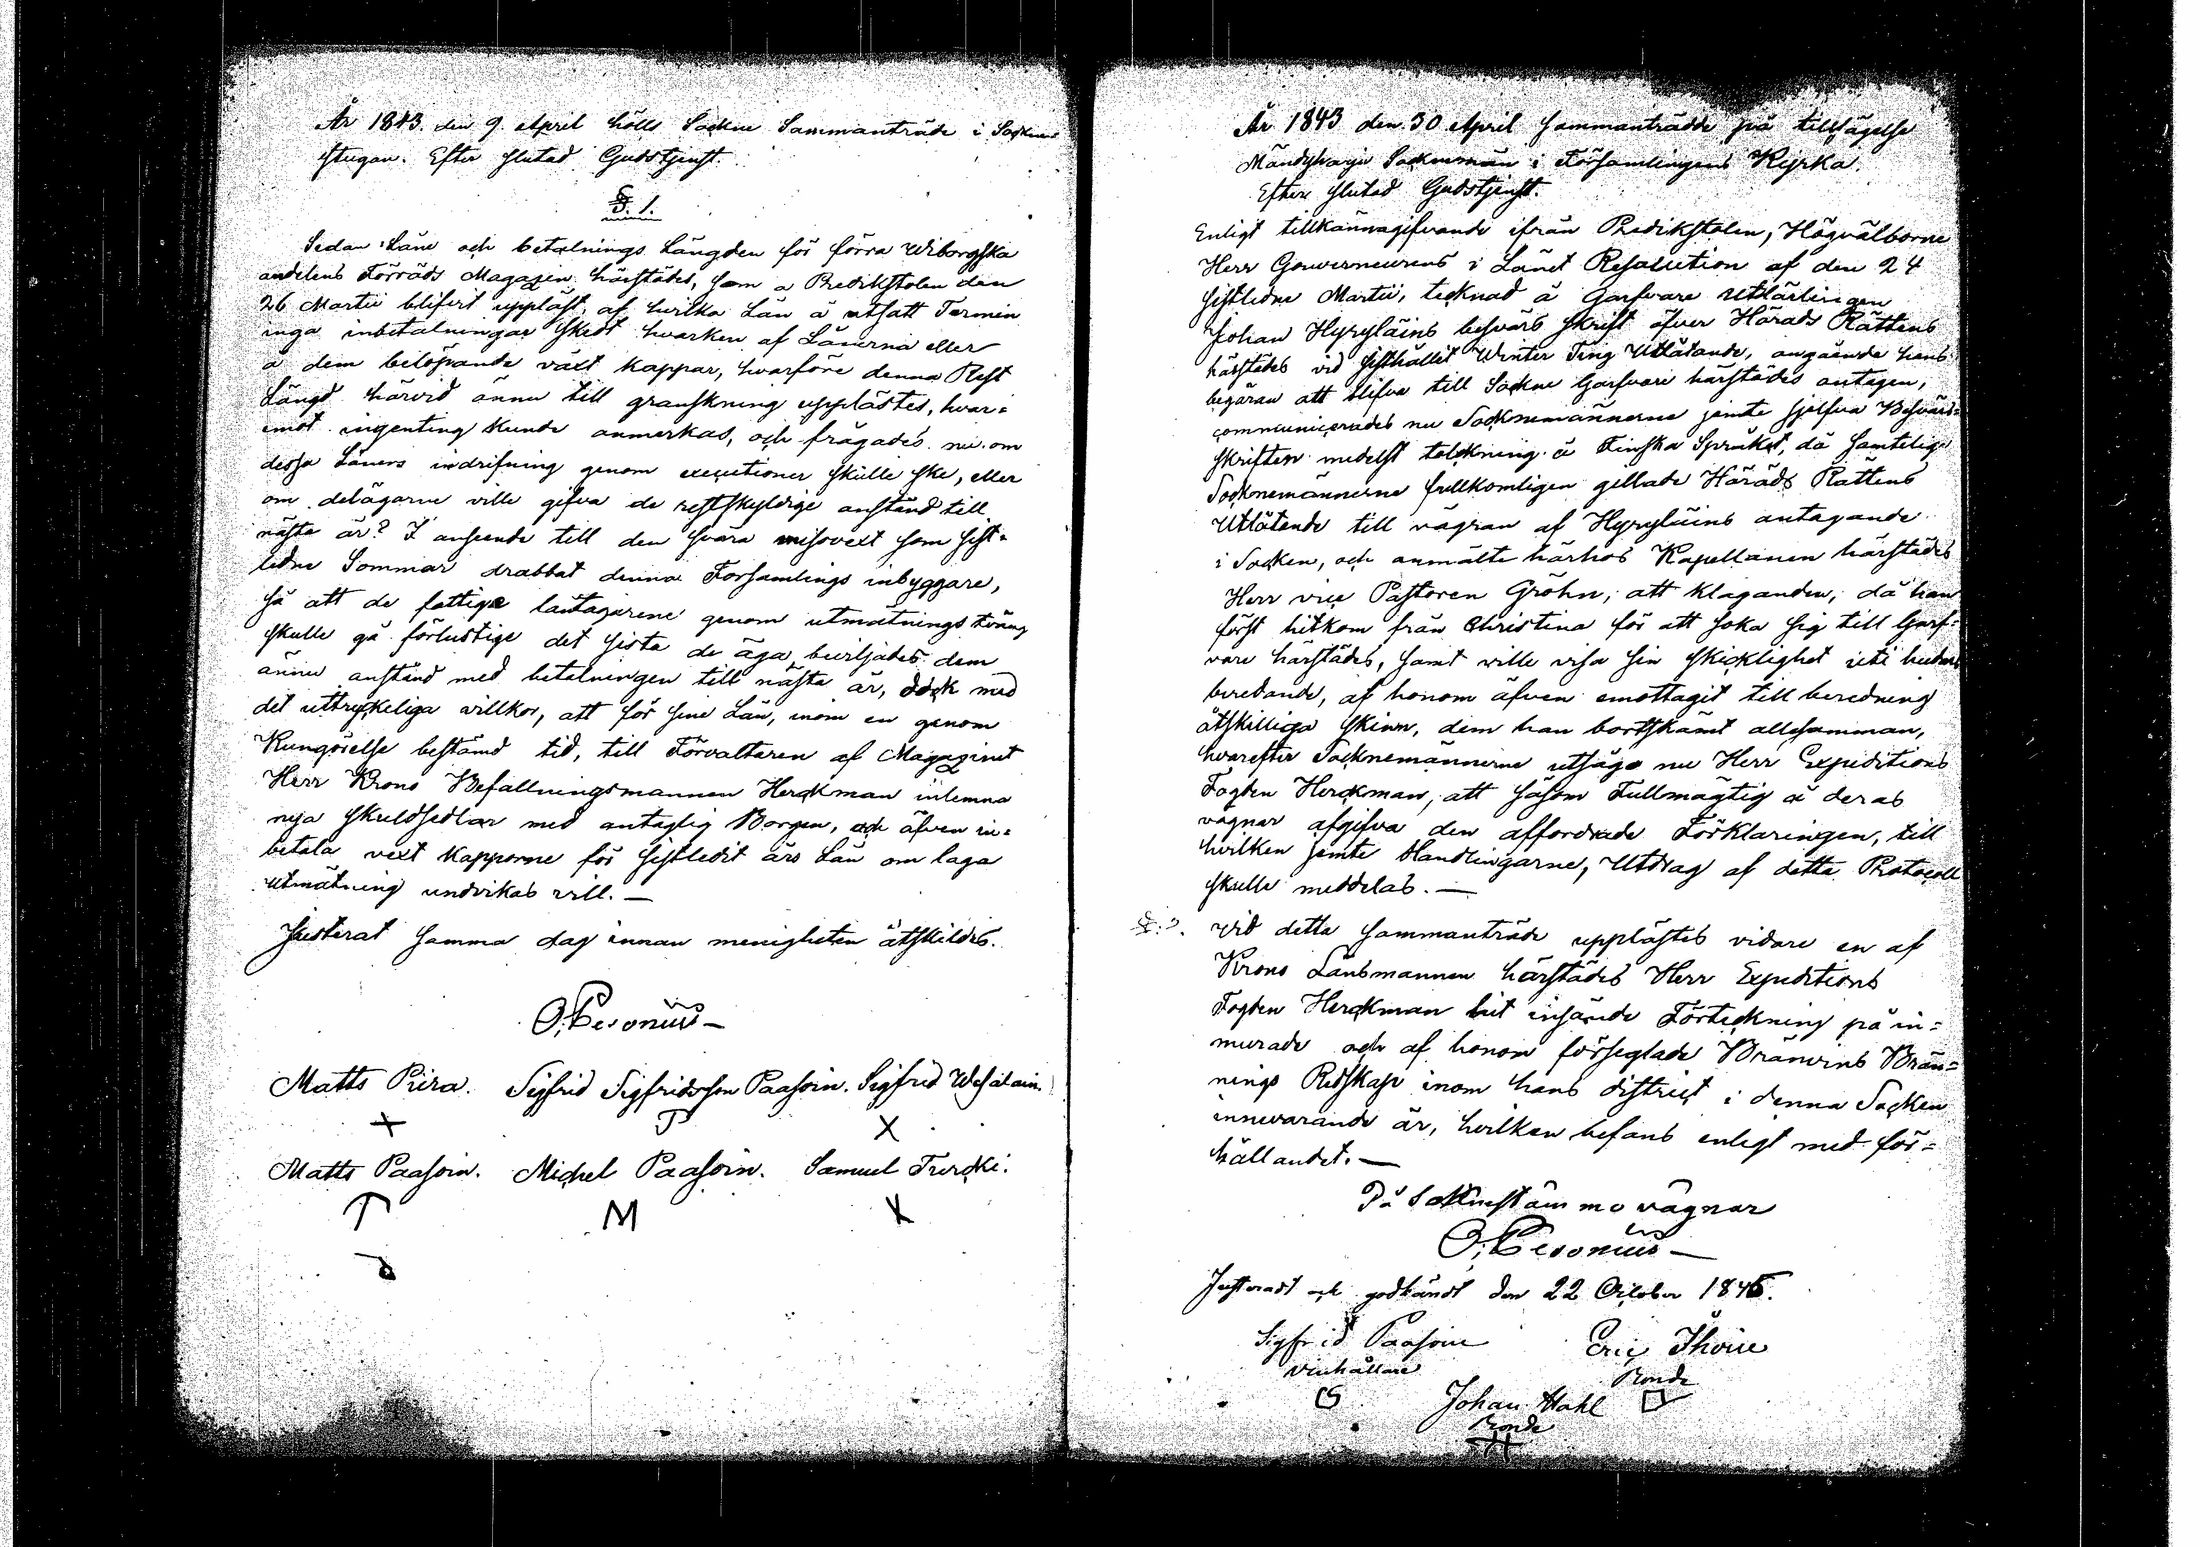 År 1843. den 9. April hölls Sockne Sammanträde i Sockne
stugan. Efter slutad Gudstjenst.
§. 1.
Sedan Låne och betalnings Längden för förra Wiborgska
andelens Förråds Magazen härstädes, som a Predikstolen den
26 Martii blifvit uppläst, af hvilka Lån å utsatt Termin
inga inbetalningar skedt hvarken af Lånerna eller
å dem belöpande växt kappar, hvarföre denna Rest
Längd härvid ännu till granskning upplästes, hvar=
emot ingenting kunde anmerkas, och frågades nu om
dessa Låners indrifning genom executioner skulle ske, eller
om delägarne ville gifva de restskyldige anstånd till
nästa år? I anseende till den svåra missvext som sist=
ledne Sommar drabbat denna Församlings inbyggare,
så att de fattige låntagarene genom utmätnings tvång
skulle gå förlustige det sista de äga beviljades dem
ännu anstånd med betalningen till nästa år, dock med
det uttryckeliga villkor, att för sine Lån, inom en genom
Kungörelse bestämd tid, till Förvaltaren af Magazinet
Herr Krono Befallningsmannen Herckman inlemna
nya skuldsedlar med antaglig Borgen, och äfven in=
betala vext kapporne för sistledit års Lån om laga
utmätning undvikas vill. —
Justerat samma dag innan menigheten åtskildes.
O. Cesonius —
Matts Piira. Sigfrid Sigfridsson Paasoin. Sigfrid Wesalain.
Matts Paasoin. Michel Paasoin. Samuel Turcki.
M
År 1843 den 30 April sammanträdde på tillsägelse
Mäntyharju Socknemän i Församlingens Kyrka.
Efter slutad Gudstjenst.
Enligt tillkännagifvande ifrån Predikstolen, Högvälborne
Herr Gouverneurens i Länet Resolution af den 24
sistledne Martii, tecknad å Garfvare Utlärlingen
Johan Hyryläins besvärs skrift öfver Härads Rättens
härstädes vid sisthållit Winter Ting Utlåtande, angående hans
begäran att blifva till Sockne Garfvare härstädes antagen,
communicerades nu Socknemännerne jemte sjelfva Besvärs=
skriften medelst tolckning å Finska Språket, då samtelige
Socknemännerne fullkomligen gillade Härads Rättens
Utlåtende till vägran af Hyryläins antagande
i Socken, och anmälte härhos Kapellanen härstädes
Herr vice Pastoren Gröhn, att klaganden, då han
först hitkom från Christina för att söka sig till Garf=
vare härstädes, samt ville visa sin skicklighet uti huders
beredande, af honom äfven emottagit till beredning
åtskilliga skinn, dem han bortskämt allesamman,
hvarefter Socknemännerne utsågo nu Herr Expeditions
Fogden Herckman, att såsom Fullmägtig å deras
vägnar afgifva den affordrade Förklaringen, till
hvilken jemte Handlingarne, Utdrag af detta Protocoll
skulle meddelas. —
§. 2. Vid detta sammanträde upplästes vidare en af
Krono Länsmannen härstädes Herr Expeditions
Fogden Herckman hit insände Förteckning på in=
murade och af honom förseglade Bränvins Brän=
nings Redskap inom hans district i denna Socken
innevarande år, hvilken befans enligt med för=
hållandet. —
På Socknestämmo vägnar
O. Cesonius —
Justeradt och godkändt den 22 October 1845.
Sigfrid Paasoin Eric Ihoin
Bonde
Johan Hahl
Bonde